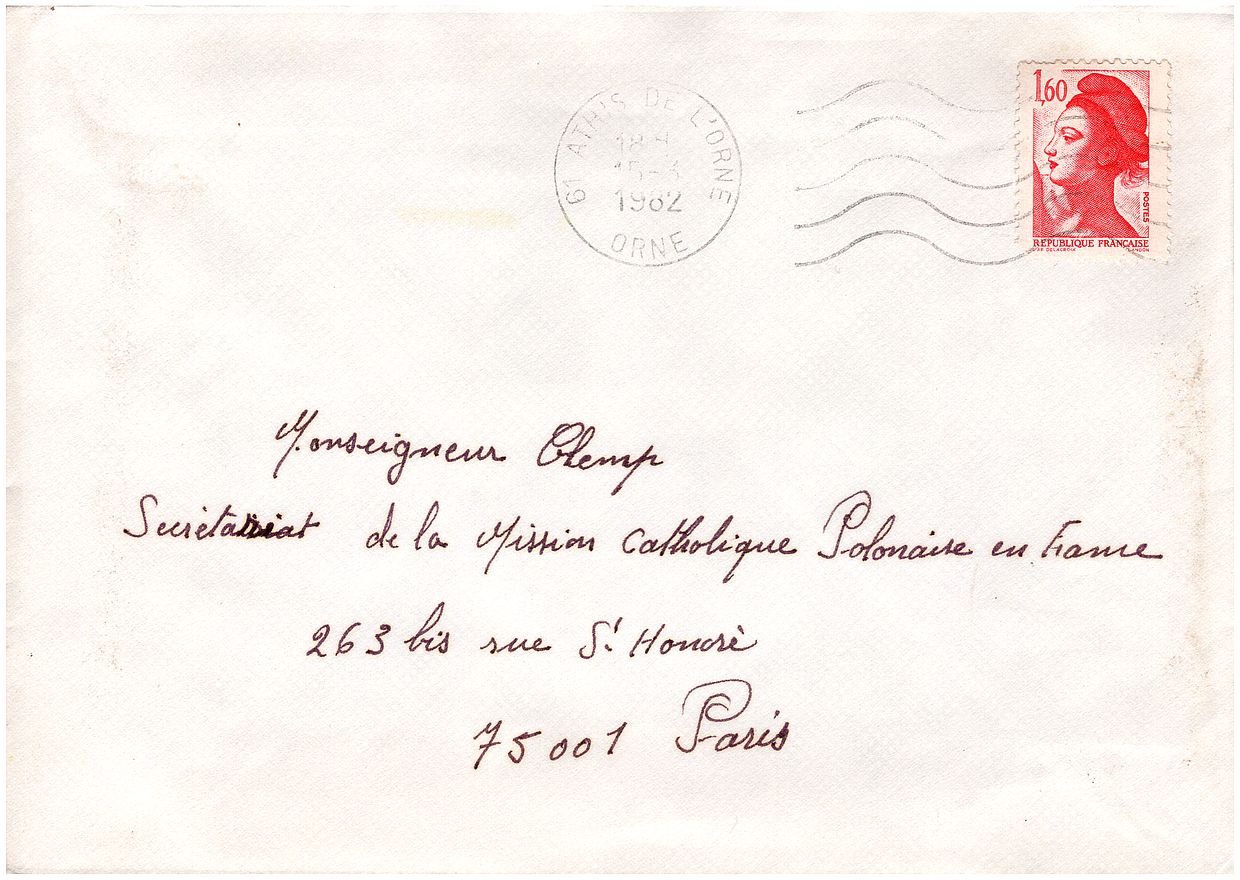 61 ATHIS DE L'ORNE
18H
15-3
1982
ORNE
1,60
POSTES
REPUBLIQUE FRANÇAISE
D'AP. DELACROIX GANDON
Monseigneur Glemp
Secrétariat de la Mission Catholique Polonaise en France
263 bis rue St Honoré
75001 Paris